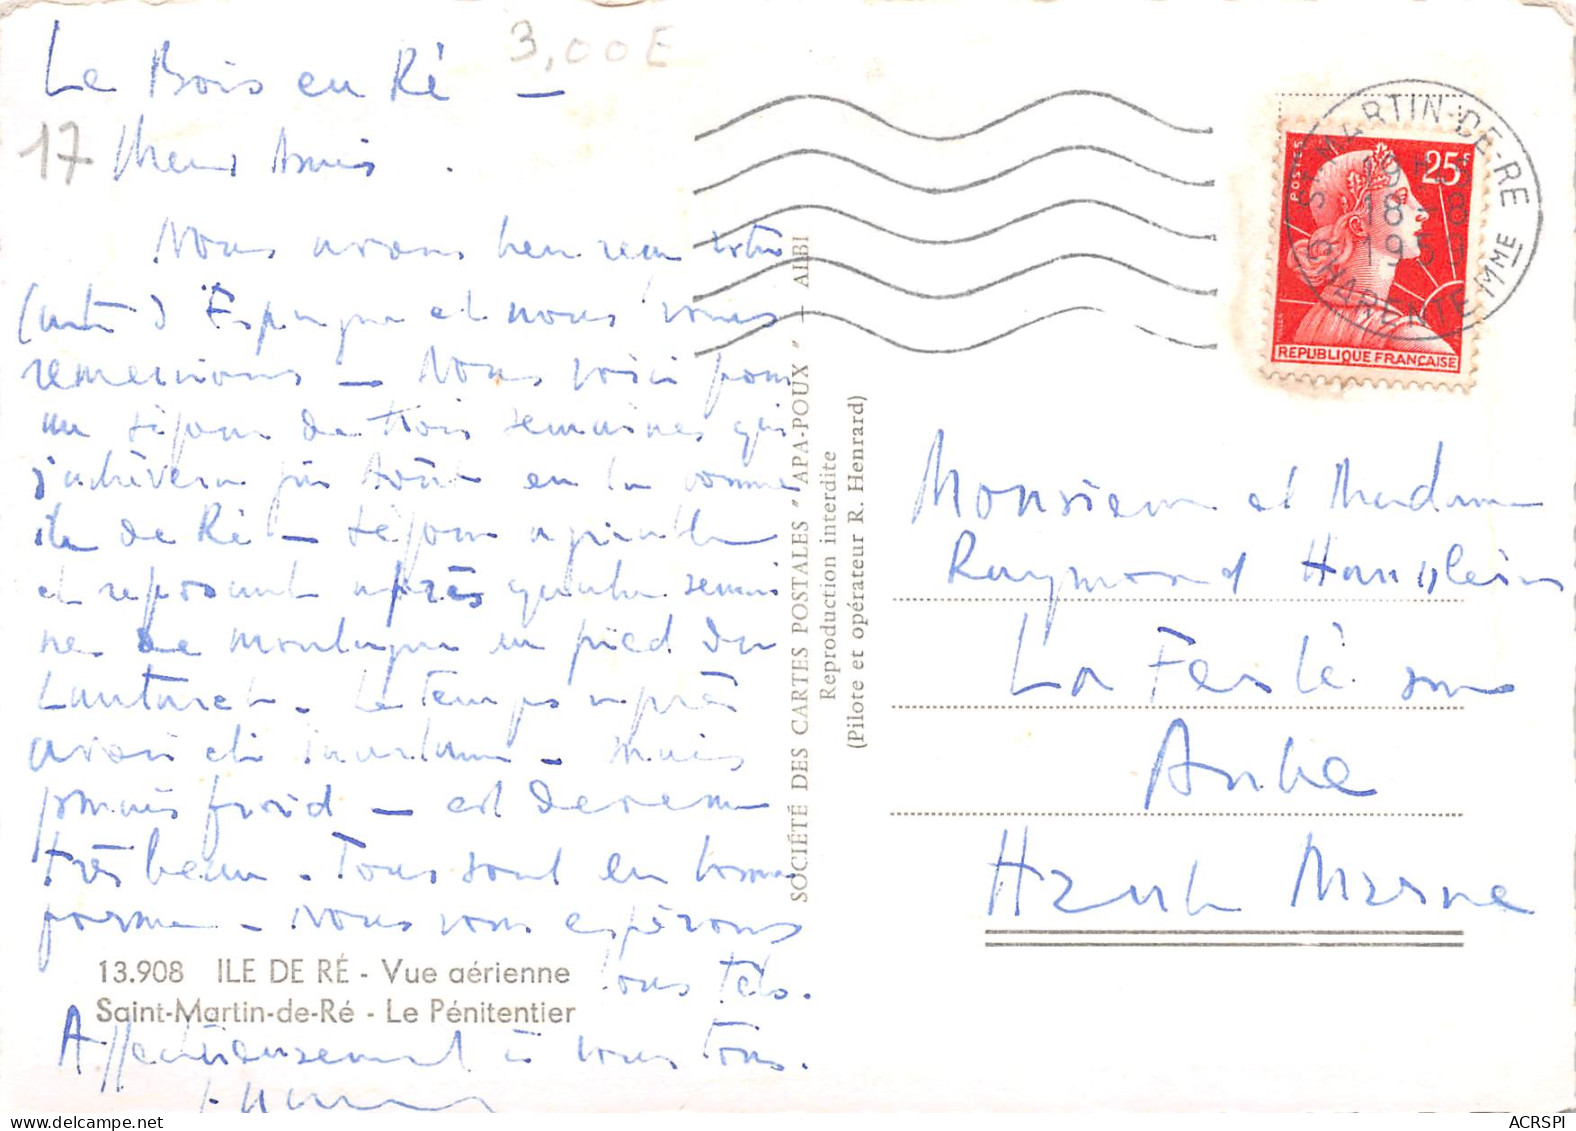 Le Bois en Ré —
3,00E
17
Chers Amis.
Nous avons bien reçu votre
(carte) d'Espagne et nous vous
remercions — Nous voici pour
un séjour de trois semaines qui
s'achèvera fin Août en la bonne
île de Ré — séjour agréable
et reposant après quatre semai
nes de montagne au pied du
. Le temps après
avoir été incertain — mais
jamais froid — est devenu
très beau. Tous sont en bonne
forme — Nous vous espérons
tous tels.
Affectueusement à vous tous.
13.908 ILE DE RÉ - Vue aérienne
Saint-Martin-de-Ré - Le Pénitentier
SOCIÉTÉ DES CARTES POSTALES "APA-POUX" - ALBI
Reproduction interdite
(Pilote et opérateur R. Henrard)
ST MARTIN-DE-RE
18 - 8
1959
CHARENTE MME
POSTES
25F
REPUBLIQUE FRANÇAISE
Monsieur et Madame
Raymond
La Ferté sur
Aube
Haute Marne
ACRSPI